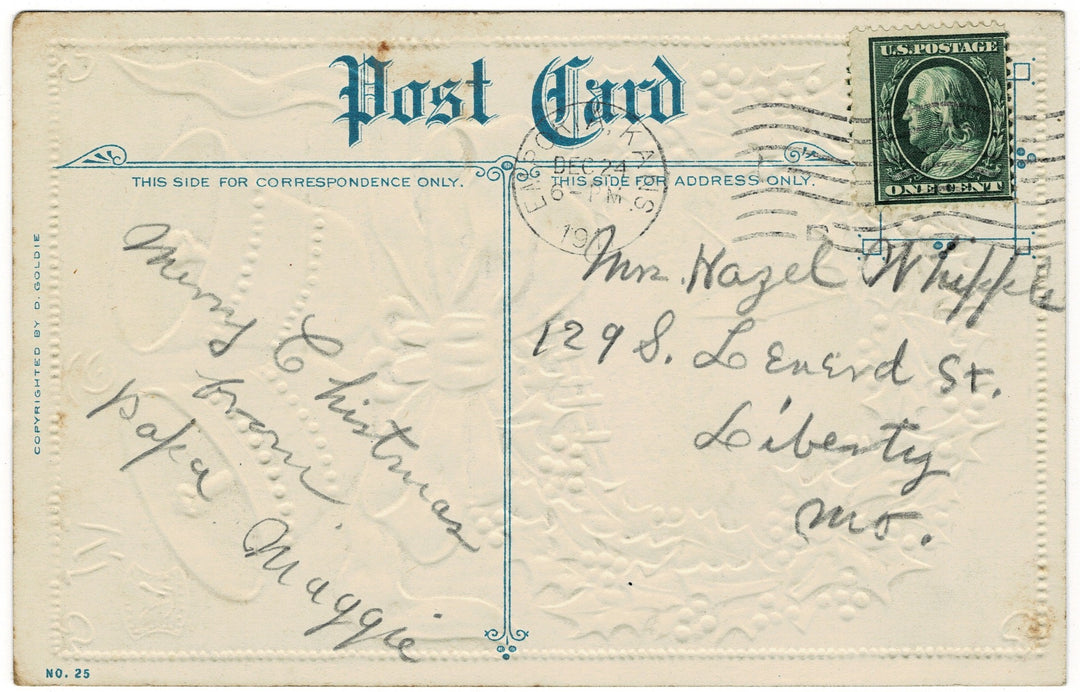 Post Card
THIS SIDE FOR CORRESPONDENCE ONLY.
THIS SIDE FOR ADDRESS ONLY.
U.S. POSTAGE
ONE CENT
KANS.
DEC 24
PM
19
Merry
Christmas
from
papa Maggie
Hazel Whipple
129 S. Lenerd St.
Liberty
Mo.
COPYRIGHTED BY D. GOLDIE
NO. 25